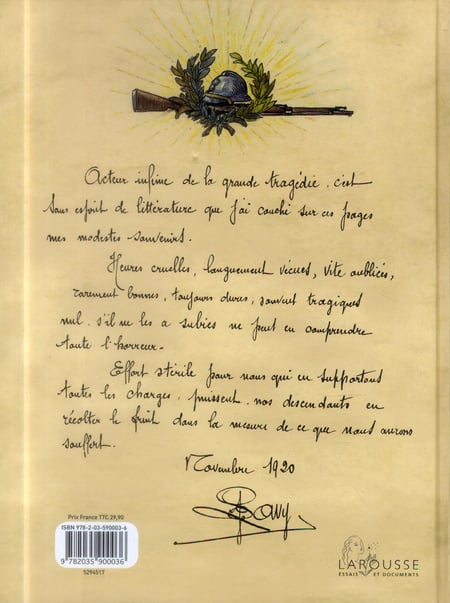 Acteur infime de la grande tragédie, c'est
sans esprit de littérature que j'ai couché sur ces pages
mes modestes souvenirs.
Heures cruelles, longuement vécues, vite oubliées,
rarement bonnes, toujours dures, souvent tragiques
nul, s'il ne les a subies ne peut en comprendre
toute l'horreur.
Effort stérile pour nous qui en supportons
toutes les charges, puissent nos descendants en
récolter le fruit dans la mesure de ce que nous aurons
souffert.
Novembre 1920
Prix France TTC 29,90
ISBN 978-2-03-590003-6
9 782035 900036
5294517
LAROUSSE
ESSAIS ET DOCUMENTS